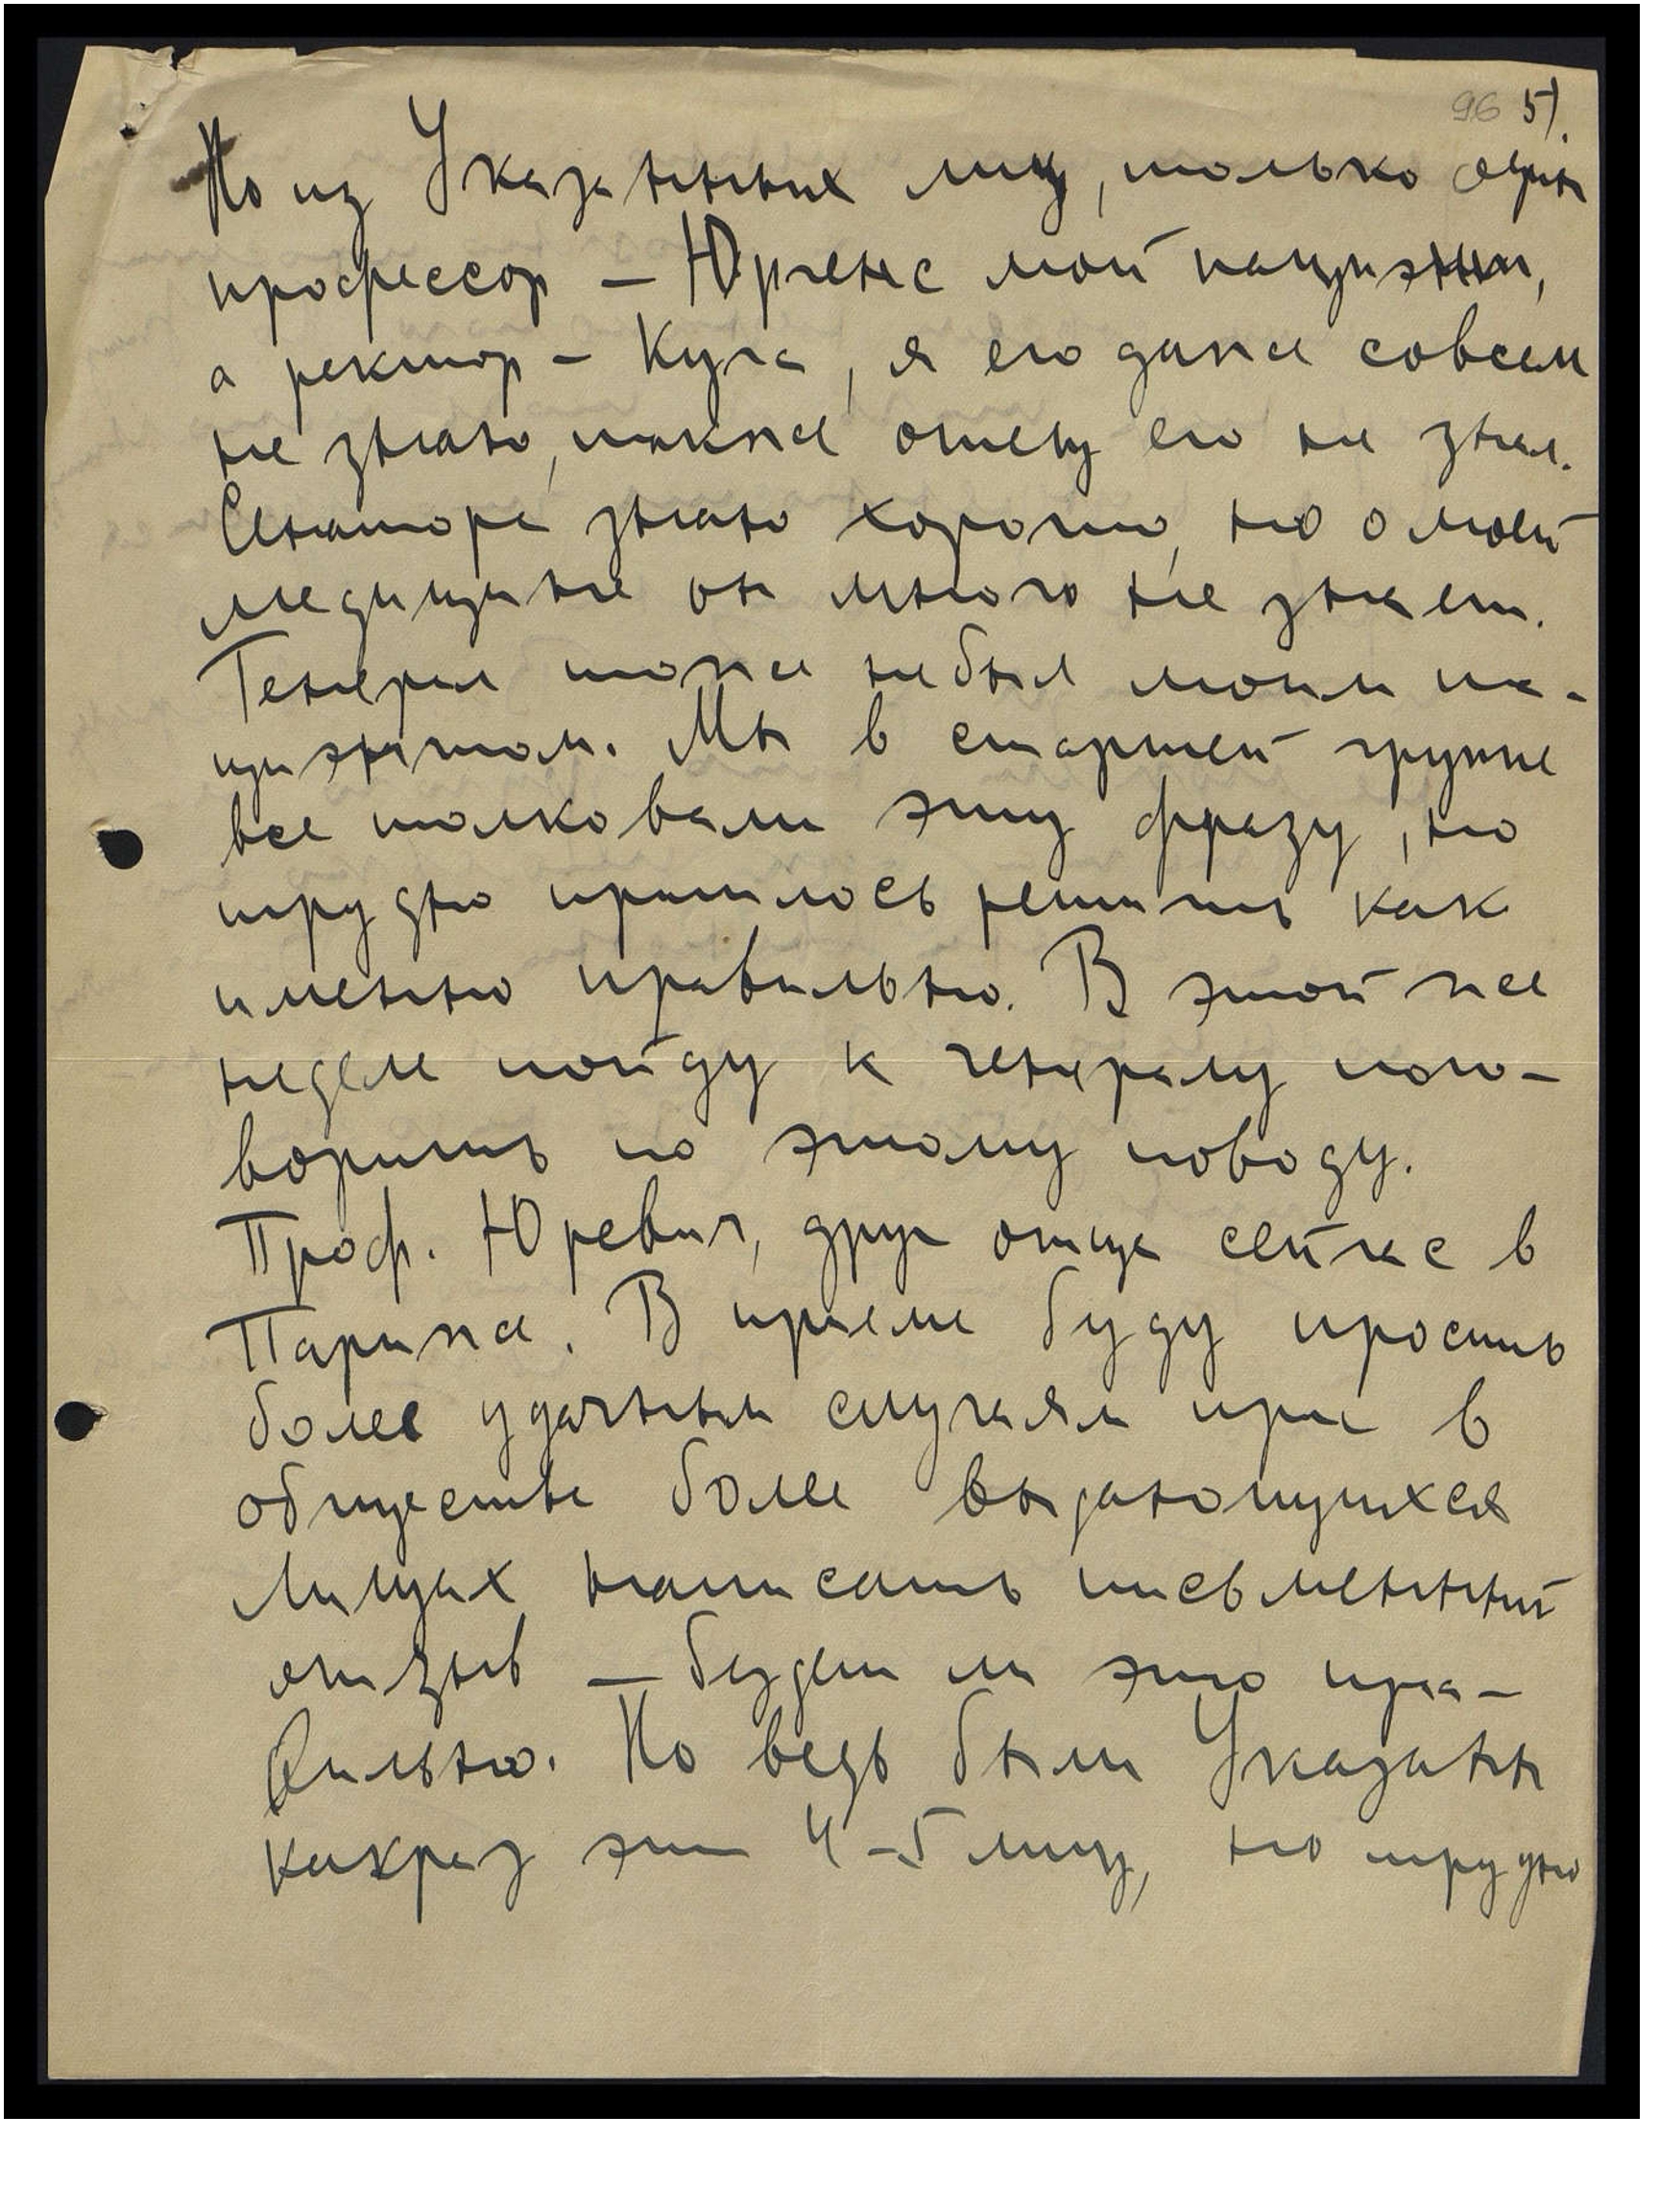 96 5).
Но из Указанных лиц, только один
профессор – Юргенс мой пациэнт,
а ректор – Куга, я его даже совсем
не знаю, также отец его не знал.
Сенатора знаю хорошо, но о моей
медицине он много не знает.
Генерал тоже не был моим па-
циэнтом. Мы в старшей группе
все толковали эту фразу, но
трудно пришлось решить как
именно правильно. В этой же
неделе пойду к генералу пого-
ворить по этому поводу.
Проф. Юревич, друг отца сейчас в
Париже. В приеме буду просить
более удачным случаям при в
обществе более выдающихся
лицах написать письменный
отзыв – будет ли это пра-
вильно. Но ведь были Указаны
какраз эти 4-5 лиц, но трудно